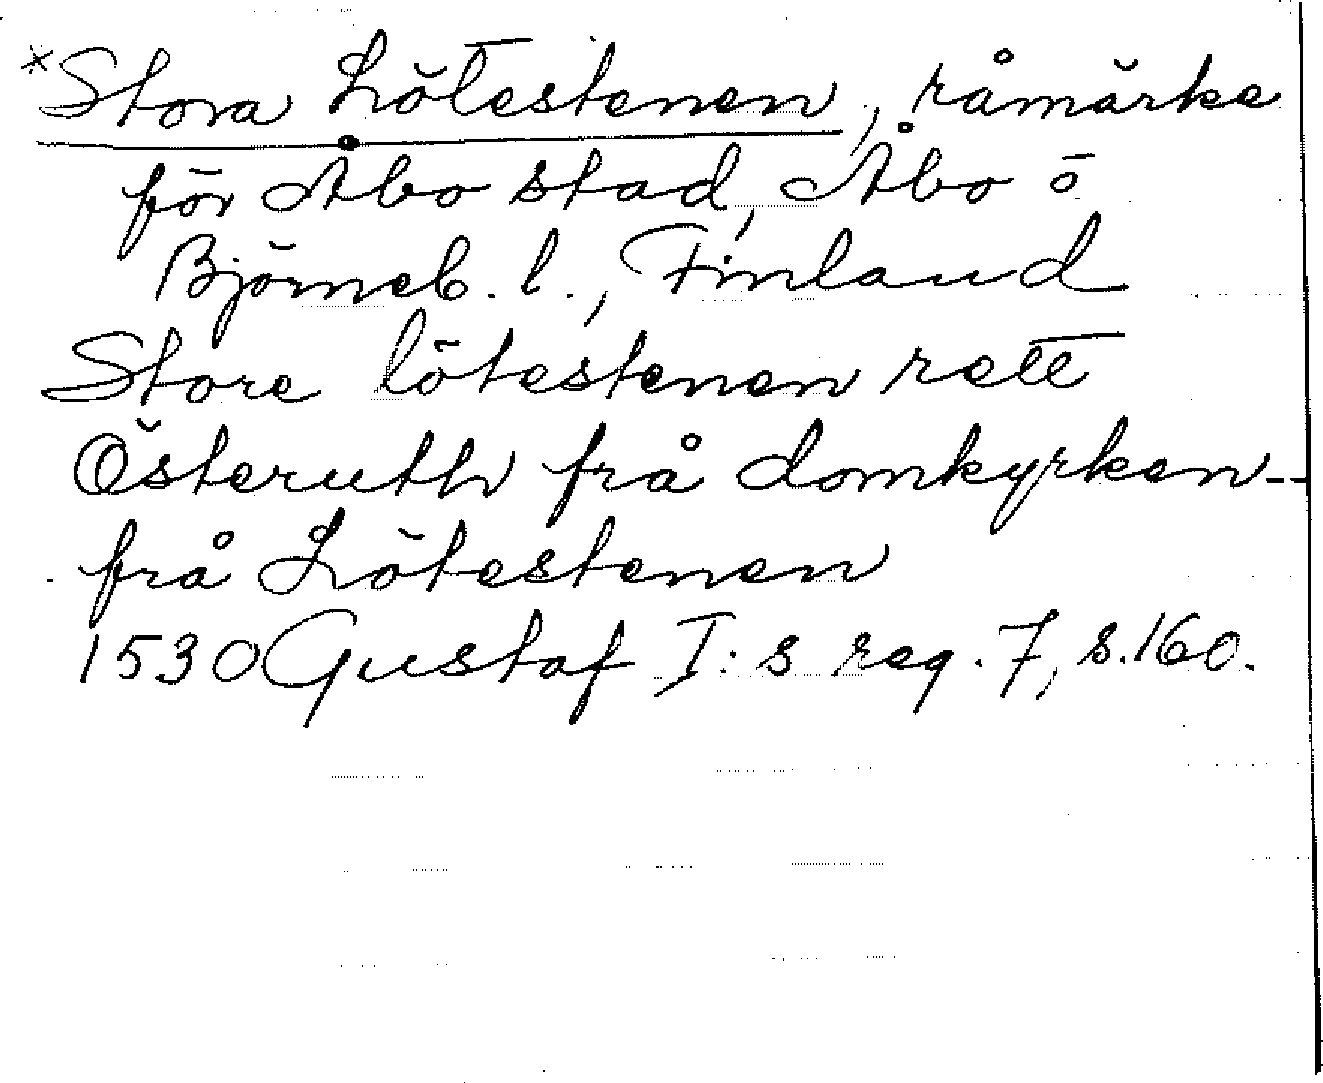 *Stora Lötestenen, råmärke
för Åbo stad, Åbo o
Björneb. l., Finland
Store lötestenen rett
Österuth frå domkyrken--
frå Lötestenen
1530 Gustaf I:s reg. 7, s. 160.